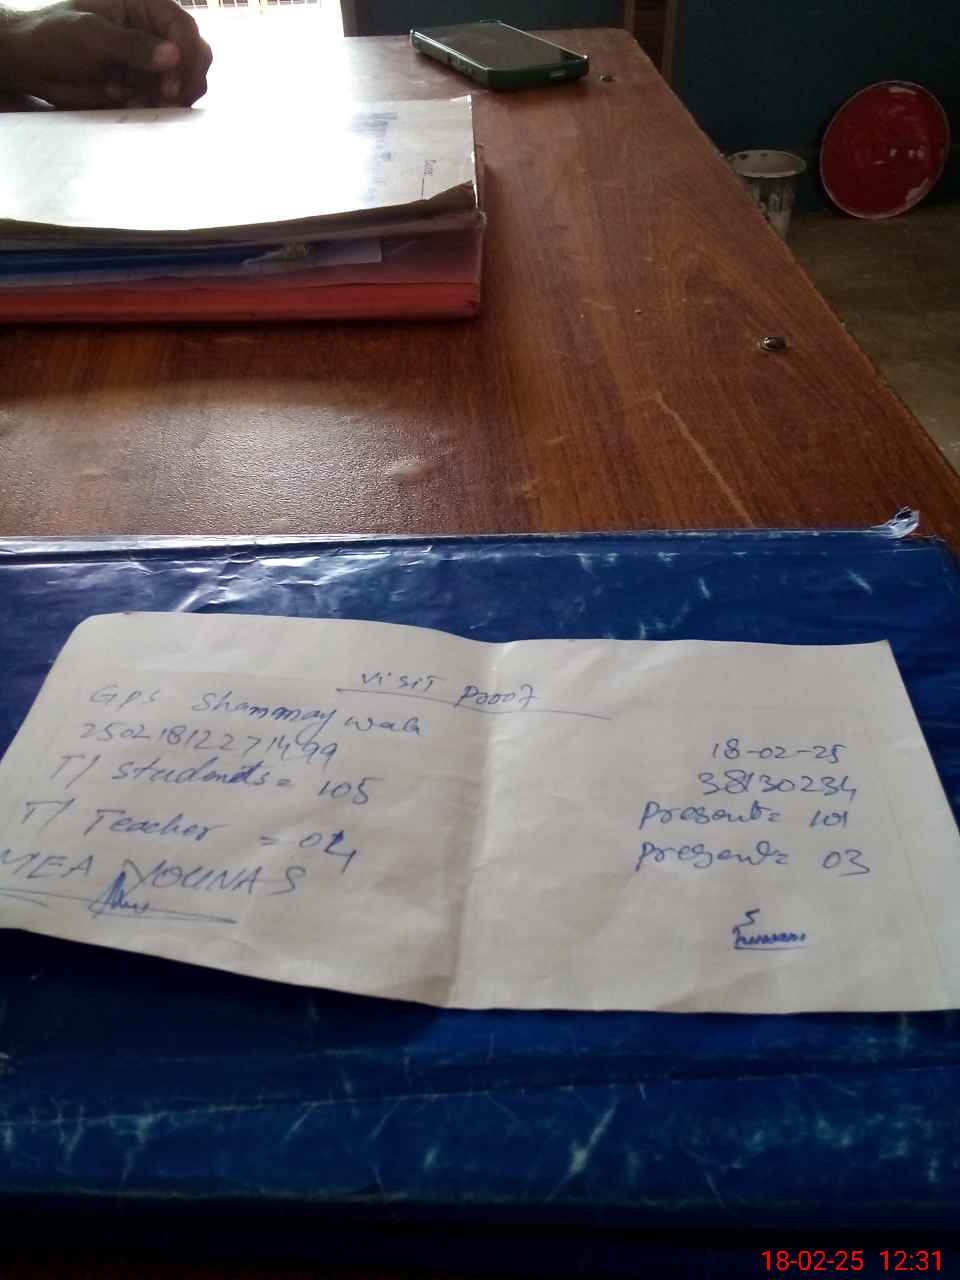 Date:
Visit Proof
GPS Shammaywala
18-02-25
25021812271499
38130234
T/ students = 105
Present = 101
T/ Teacher = 04
Present = 03
MEA YOUNAS
18-02-25 12:31